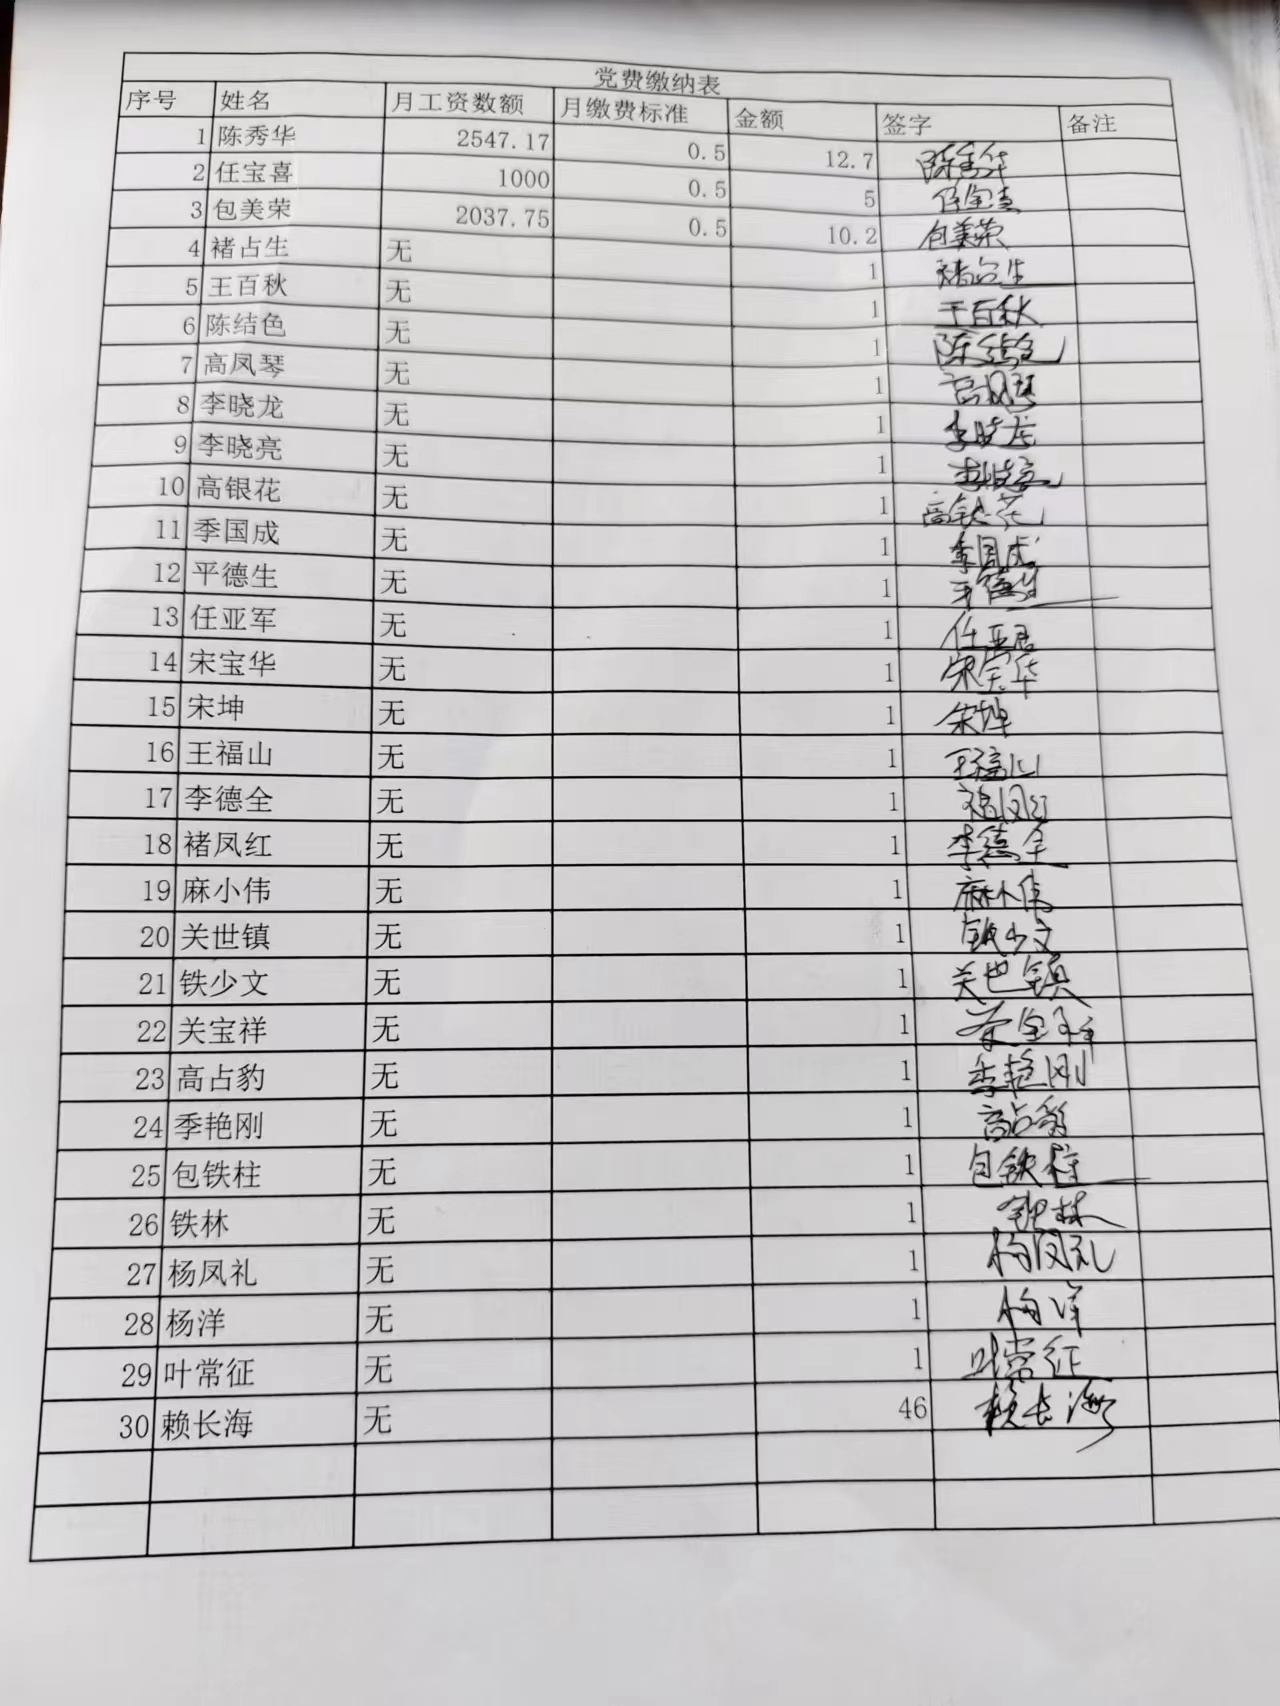 党费缴纳表
序号 姓名 月工资数额 月缴费标准 金额 签字 备注
1 陈秀华 2547.17 0.5 12.7 陈秀华
2 任宝喜 1000 0.5 5 任宝喜
3 包美荣 2037.75 0.5 10.2 包美荣
4 褚占生 无 1 褚占生
5 王百秋 无 1 王百秋
6 陈结色 无 1 陈结色
7 高凤琴 无 1 高凤琴
8 李晓龙 无 1 李晓龙
9 李晓亮 无 1 李晓亮
10 高银花 无 1 高银花
11 季国成 无 1 季国成
12 平德生 无 1 平德生
13 任亚军 无 1 任亚君
14 宋宝华 无 1 宋宝华
15 宋坤 无 1 宋坤
16 王福山 无 1 王福山
17 李德全 无 1 褚凤红
18 褚凤红 无 1 李德全
19 麻小伟 无 1 麻小伟
20 关世镇 无 1 铁少文
21 铁少文 无 1 关世镇
22 关宝祥 无 1 关宝祥
23 高占豹 无 1 季艳刚
24 季艳刚 无 1 高占豹
25 包铁柱 无 1 包铁柱
26 铁林 无 1 铁林
27 杨凤礼 无 1 杨凤礼
28 杨洋 无 1 杨洋
29 叶常征 无 1 叶常征
30 赖长海 无 46 赖长海